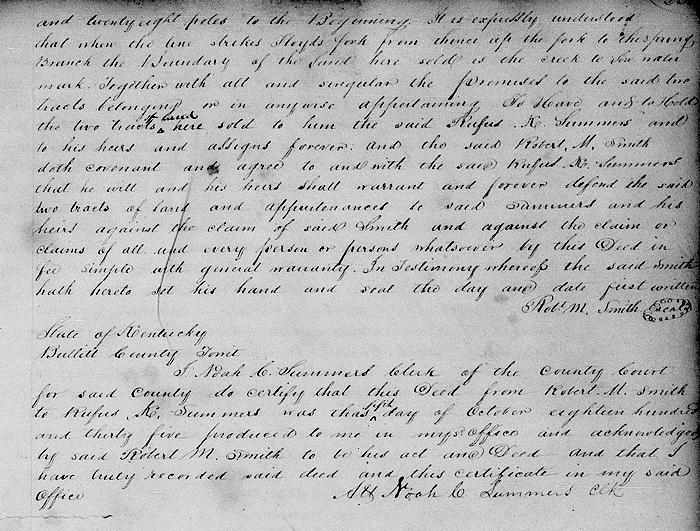 and twenty eight poles to the Beginning. It is expressly understood
that when the line strikes Floyds fork from thence up the fork to the Spring
Branch the Boundary of the land here sold is the creek to low water
mark. Together with all and singular the premises to the said two
tracts belonging or in anywise appertaining To Have and to Hold
the two tracts of land here sold to him the said Rufus K. Summers and
to his heirs and assigns forever. and the said Robert M. Smith
doth covenant and agree to and with the said Rufus K. Summers
that he will and his heirs shall warrant and forever defend the said
two tracts of land and appurtenances to said Summers and his
heirs against the claim of said Smith and against the claim or
claims of all and every person or persons whatsoever by this Deed in
fee simple with general warranty. In Testimony whereof the said Smith
hath hereto set his hand and seal the day and date first written
Robt. M. Smith Seal
State of Kentucky
Bullitt County Towit
I Noah C. Summers Clerk of the County Court
for said County do certify that this Deed from Robert M. Smith
to Rufus K. Summers was this day of October eighteen hundred
and thirty five produced to me in my office and acknowledged
by said Robert M. Smith to be his act and Deed and that I
have truly recorded said deed and this certificate in my said
Office
Att Noah C Summers Clk